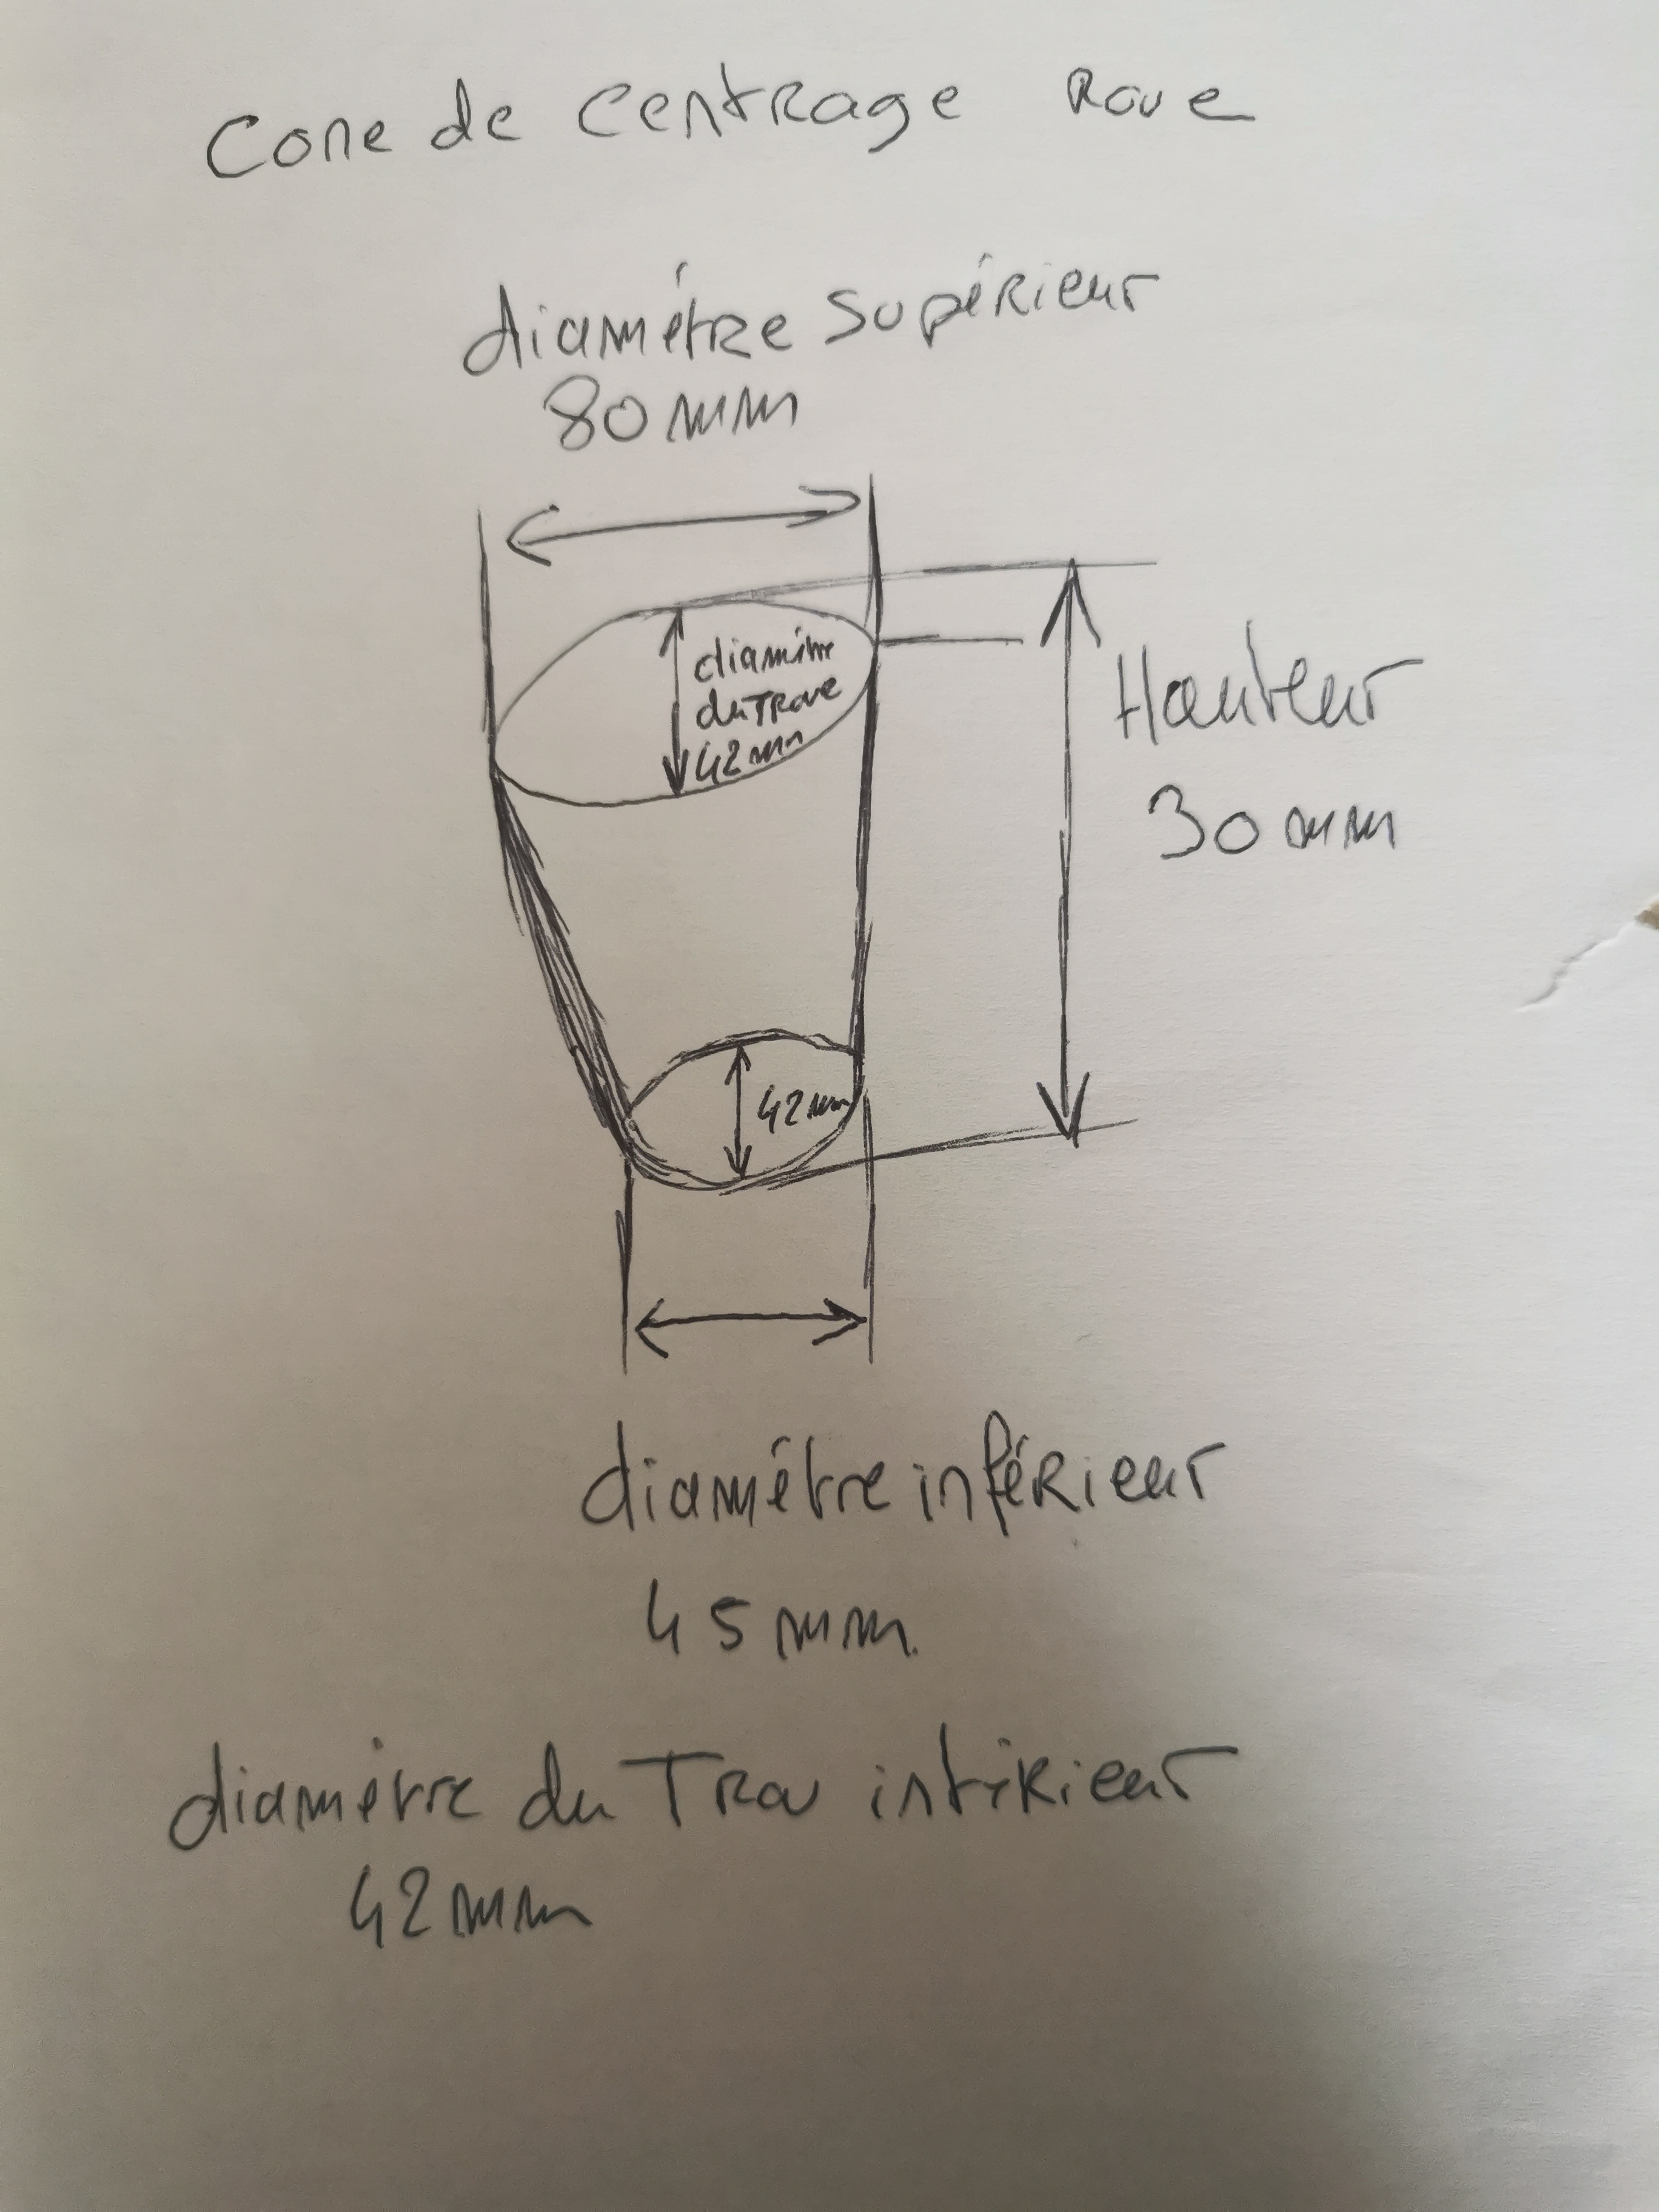 Cone de centrage Roue
diamétre supérieur
80 mm
diamétre
du Troue
42 mm
Hauteur
30 mm
42 mm
diamétre inférieur
45 mm
diamétre du Trou intérieur
42 mm